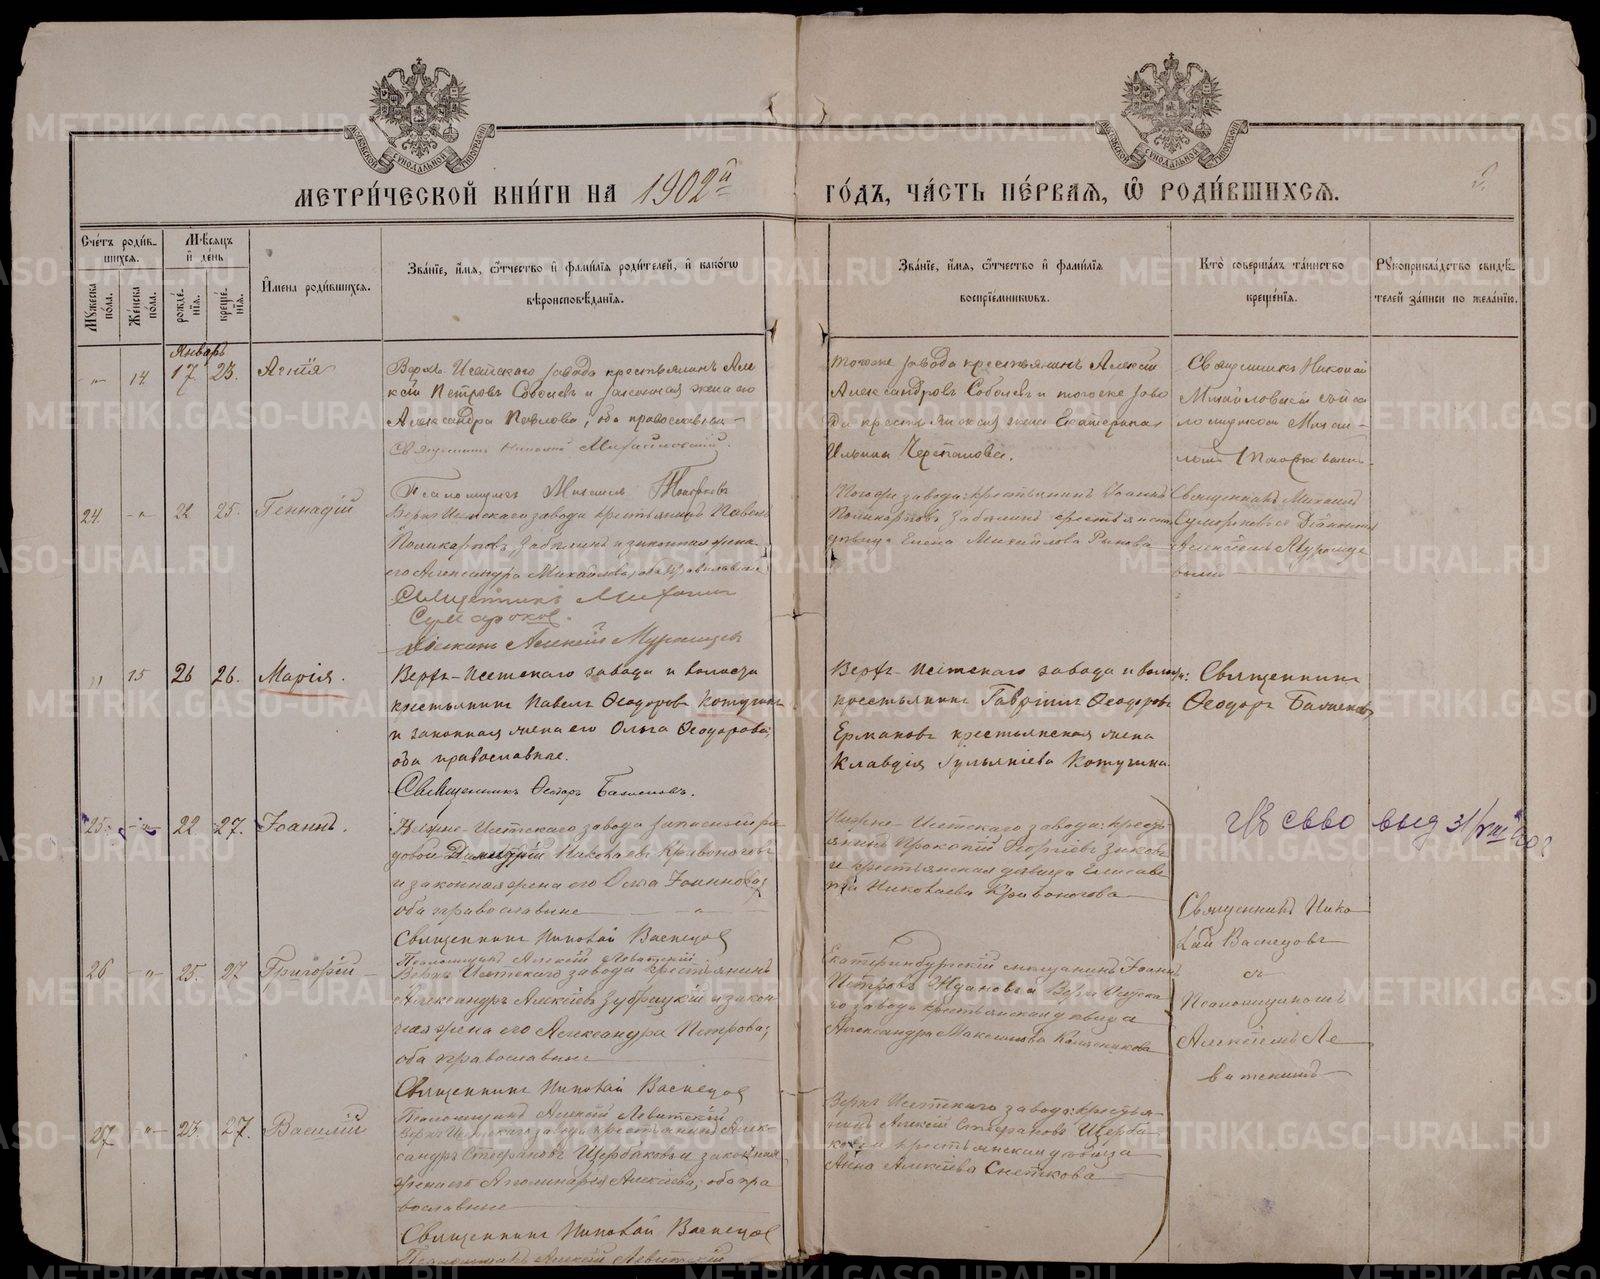 МЕТРИ́ЧЕСКОЙ КНИ́ГИ НА 1902й
ГО́ДЪ, ЧА́СТЬ ПЕ́РВАЯ, Ѡ҆ РОДИ́ВШИХСЯ.
Сче́тъ роди́в-
шихся.
Мꙋжеска пола.
Же́нска пола.
Мѣсяцъ
и҆ де́нь
рожде́нія.
креще́нія.
И҆мена роди́вшихся.
Зва́ніе, и҆́мя, ѻ҆́тчество и҆ фами́лія роди́телей, и҆ како́гѡ
вѣроисповѣ́данія.
Зва́ніе, и҆́мя, ѻ҆́тчество и҆ фами́лія
воспріе́мниковъ.
Кто̀ соверша́лъ та́инство
креще́нія.
Рꙋкоприкла́дство свидѣ́-
телей за́писи по жела́нію.
Январь
" 14 17 23. Агнія
Верхъ Исетскаго завода крестьянинъ Але
ксій Петровъ Соболевъ и законная жена его
Александра Павлова, оба православные
Священникъ Николай Михайловскій.
Псаломщикъ Михаилъ Топорковъ
тогоже завода крестьянинъ Алексій
Александровъ Соболевъ и тогоже заво
да крестьянская жена Екатерина
Ильина Черепанова.
Священникъ Николай
Михайловскій съ пса
ломщикомъ Михаи-
ломъ Топорковымъ
24. " 22 25. Геннадій
Верхъ Исетскаго завода крестьянинъ Павелъ
Поликарповъ Забѣлинъ и законная жена
его Александра Михайлова, оба православные
Священникъ Михаилъ
Сумароковъ.
Діаконъ Алексій Муромцевъ
Тогоже завода: крестьянинъ Іоаннъ
Поликарповъ Забѣлинъ крестьянская
дѣвица Елена Михайлова Рыкова
Священникъ Михаилъ
Сумароковъ съ Діакономъ
Алексѣемъ Муромце
вымъ
" 15 26 26. Марія.
Верхъ-Исетскаго завода и волости
крестьянинъ Павелъ Ѳеодоровъ Котугинъ
и законная жена его Ольга Ѳеодорова;
оба православные.
Священникъ Ѳеодоръ Баженовъ.
Верхъ-Исетскаго завода и волости:
крестьянинъ Гавріилъ Ѳеодоровъ
Ермаковъ крестьянская жена
Клавдія Гульяніева Котугина.
Священникъ
Ѳеодоръ Баженовъ
25. " 22 27. Іоаннъ.
Нижне-Исетскаго завода запасный ря
довой Димитрій Николаевъ Кривоноговъ
и законная жена его Ольга Іоаннова,
оба православные
Священникъ Николай Васнецов
Псаломщикъ Алексій Левитскій
Нижне-Исетскаго завода: кресть-
янинъ Прокопій Георгіевъ Зыковъ
и крестьянская дѣвица Елисаве
та Николаева Кривоногова
26 " 25. 27 Григорій
Верхъ Исетскаго завода крестьянинъ
Александръ Алексіевъ Зубрицкій и закон
ная жена его Александра Петрова;
оба православные
Священникъ Николай Васнецов
Псаломщикъ Алексій Левитскій
Екатеринбургскій мѣщанинъ Іоаннъ
Петровъ Ждановъ и Верхъ Исетска
го завода крестьянская дѣвица
Александра Максимова Калачникова
Священникъ Нико
лай Васнецовъ
съ
Псаломщикомъ
Алексѣемъ Ле
витскимъ
27 " 23. 27. Василій
Верхъ Исетскаго завода крестьянинъ Алек-
сандръ Стефановъ Щербаковъ и законная
жена его Аполинарія Алексіева; оба пра
вославные
Священникъ Николай Васнецов
Псаломщикъ Алексій Левитскій
Верхъ Исетскаго завода: крестья-
нинъ Алексій Стефановъ Щерба
ковъ и крестьянская дѣвица
Анна Алексіева Снеткова